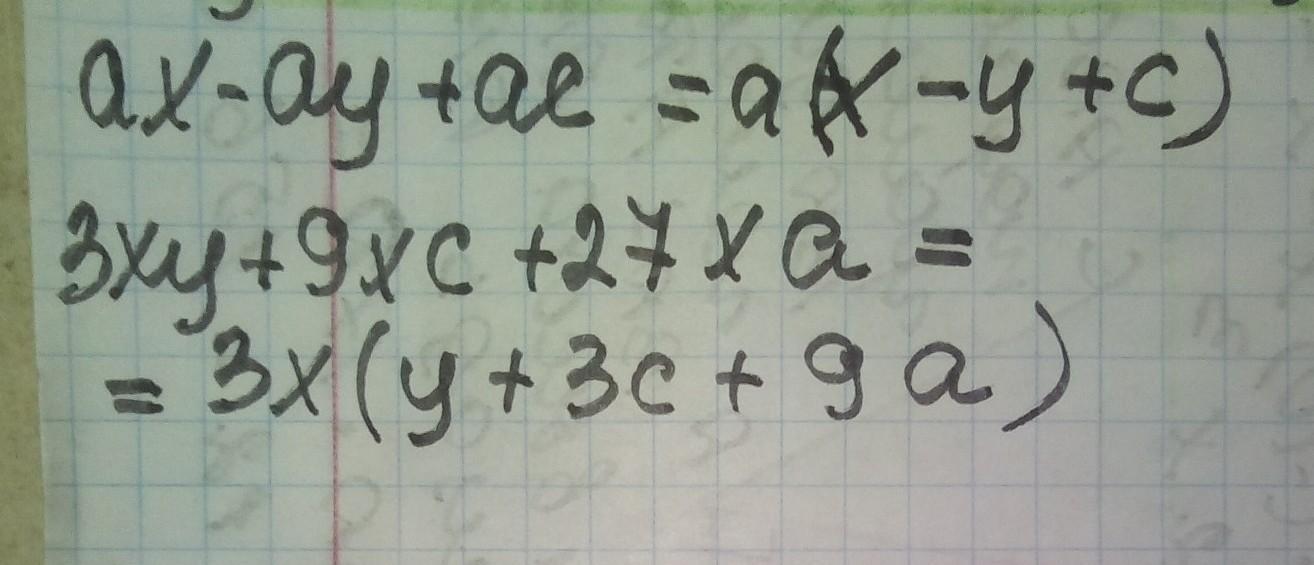 ax-ay+ac=a(x-y+c)
3xy+9xc+27xa=
=3x(y+3c+9a)